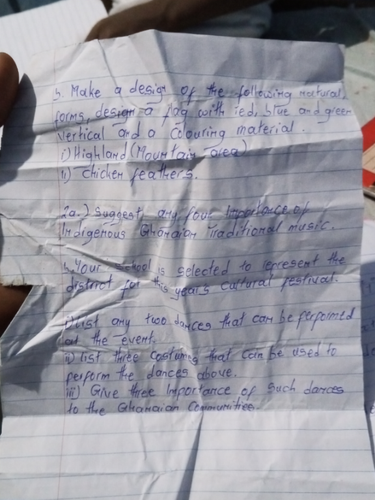 5 Make a design of the following natural
forms, design a flag with red, blue and green
Vertical and a Colouring material.
i) Highland (Mountain area)
ii) Chicken feathers.
2a.) Suggest any four Importance of
Indigenous Ghanaian Traditional music.
4. Your school is selected to represent the
district for this years cultural festival.
i) List any two dances that can be performed
at the event.
ii) list three costumes that can be used to
perform the dances above.
iii) Give three Importance of such dances
to the Ghanaian Communities.